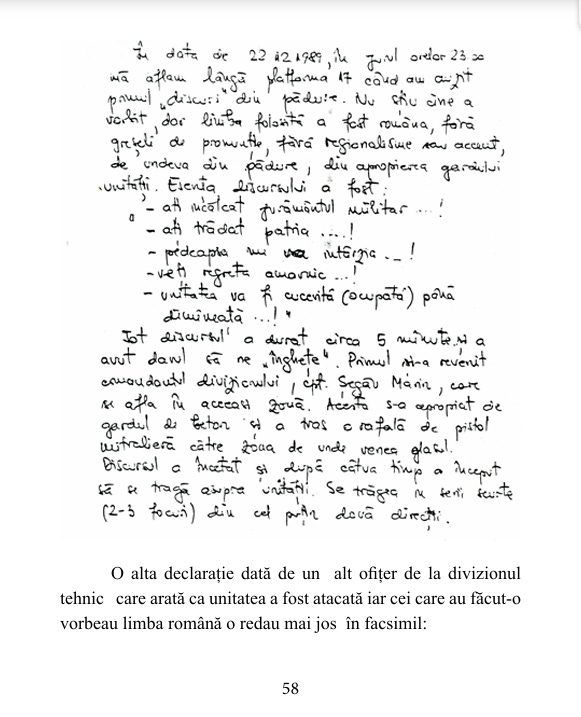 În data de 22 12 1989, în jurul orelor 23 00
mă aflam lângă platforma 17 când am auzit
primul „discurs” din pădure. Nu știu cine a
vorbit, dar limba folosită a fost româna, fără
greșeli de pronunție, fără regionalisme sau accent,
de undeva din pădure, din apropierea gardului
unității. Esența discursului a fost:
„- ați încălcat jurământul militar ...!
- ați trădat patria ....!
- pedeapsa nu va întârzia ...!
- veți regreta amarnic ...!
- unitatea va fi cucerită (ocupată) până
dimineață ...!"
Tot discursul a durat circa 5 minute și a
avut darul să ne „înghețe”. Primul și-a revenit
comandantul divizionului, cpt. Segău Marin, care
se afla în aceeași zonă. Acesta s-a apropiat de
gardul de beton și a tras o rafală de pistol
mitralieră către zona de unde venea glasul.
Discursul a încetat și după câtva timp a început
să se tragă asupra unității. Se trăgea în serii scurte
(2-3 focuri) din cel puțin două direcții.
O alta declarație dată de un alt ofițer de la divizionul
tehnic care arată ca unitatea a fost atacată iar cei care au făcut-o
vorbeau limba română o redau mai jos în facsimil:
58